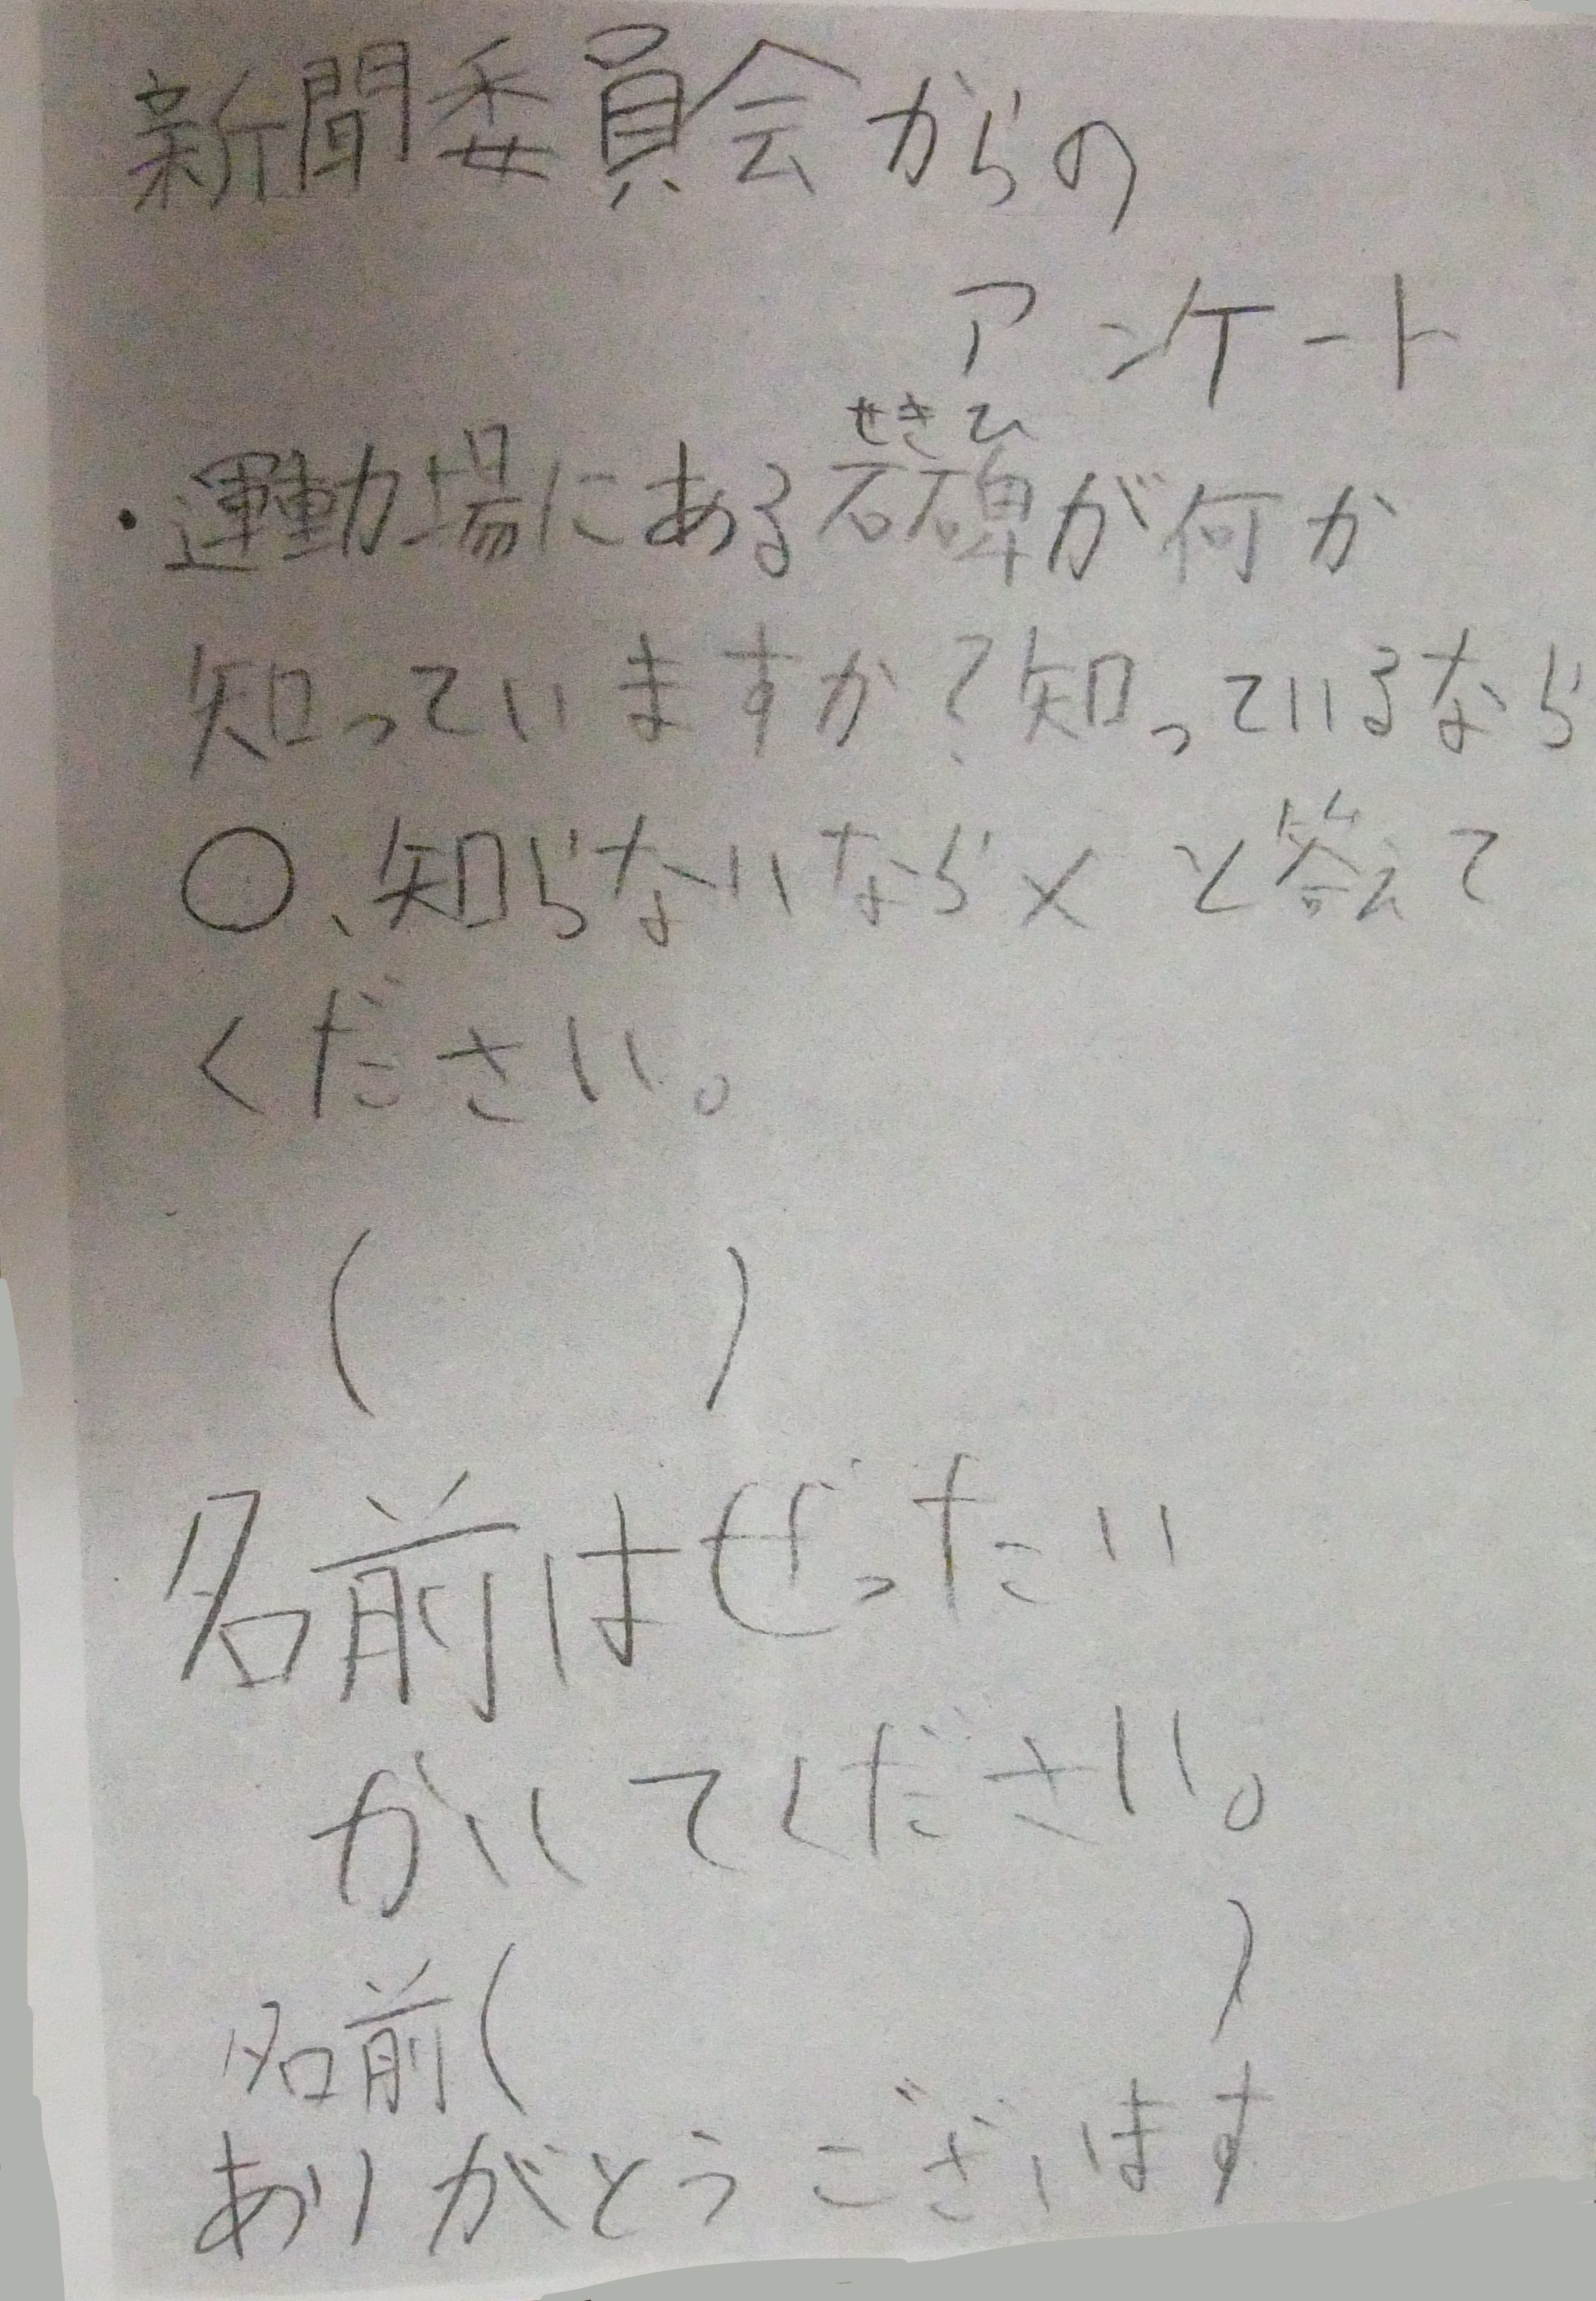 新聞委員会からの
アンケート
せきひ
・運動場にある石碑が何か
知っていますか?知っているなら
〇、知らないなら×と答えて
ください。
( )
名前はぜったい
かいてください。
名前( )
ありがとうございます